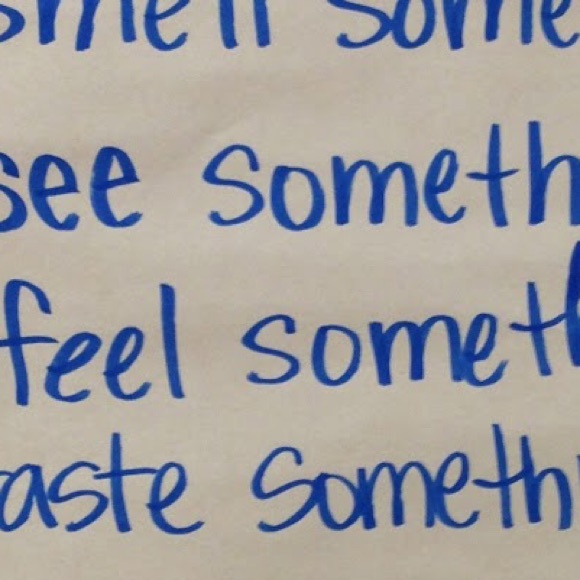 smell some
see someth
feel someth
taste somethi